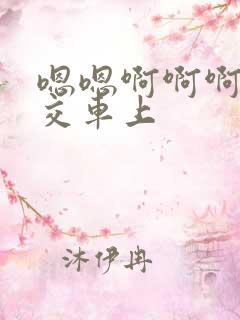 嗯嗯啊啊啊
交車上
沐伊冉